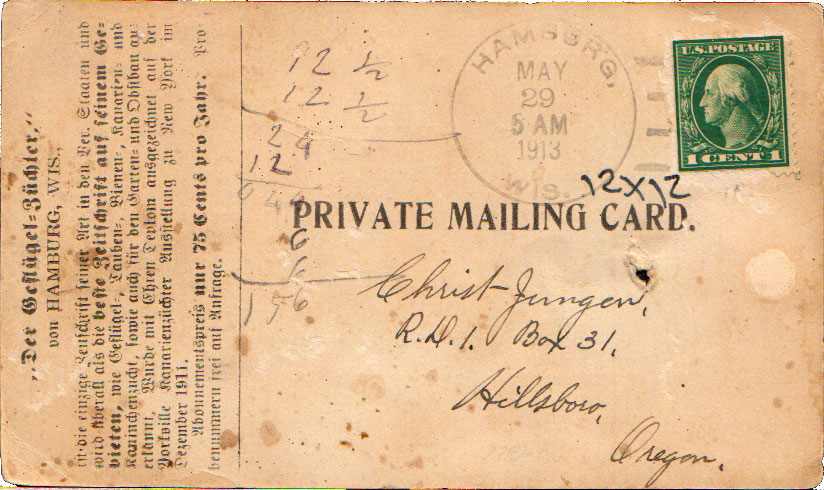 „Der Geflügel-Züchter,"
von HAMBURG, WIS.,
ist die einzige Zeitschrift seiner Art in den Ver. Staaten und
wird überall als die beste Zeitschrift auf seinem Ge-
bieten, wie Geflügel-, Tauben-, Bienen-, Kanarien- und
Kaninchenzucht, sowie auch für den Garten- und Obstbau an-
erkannt, Wurde mit Ehren Deplom ausgezeichnet auf der
Yorkville Kanarienzüchter Austellung zu New York im
Dezember 1911.
Abonnementspreis nur 75 Cents pro Jahr. Pro-
benummern frei auf Anfrage.
12 ½
12 ½
24
12
6
6
156
HAMBURG,
MAY
29
5 AM
1913
WIS.
U.S. POSTAGE
1 CENT 1
12x12
PRIVATE MAILING CARD.
Christ Jungen,
R.D.1. Box 31,
Hillsboro,
Oregon,